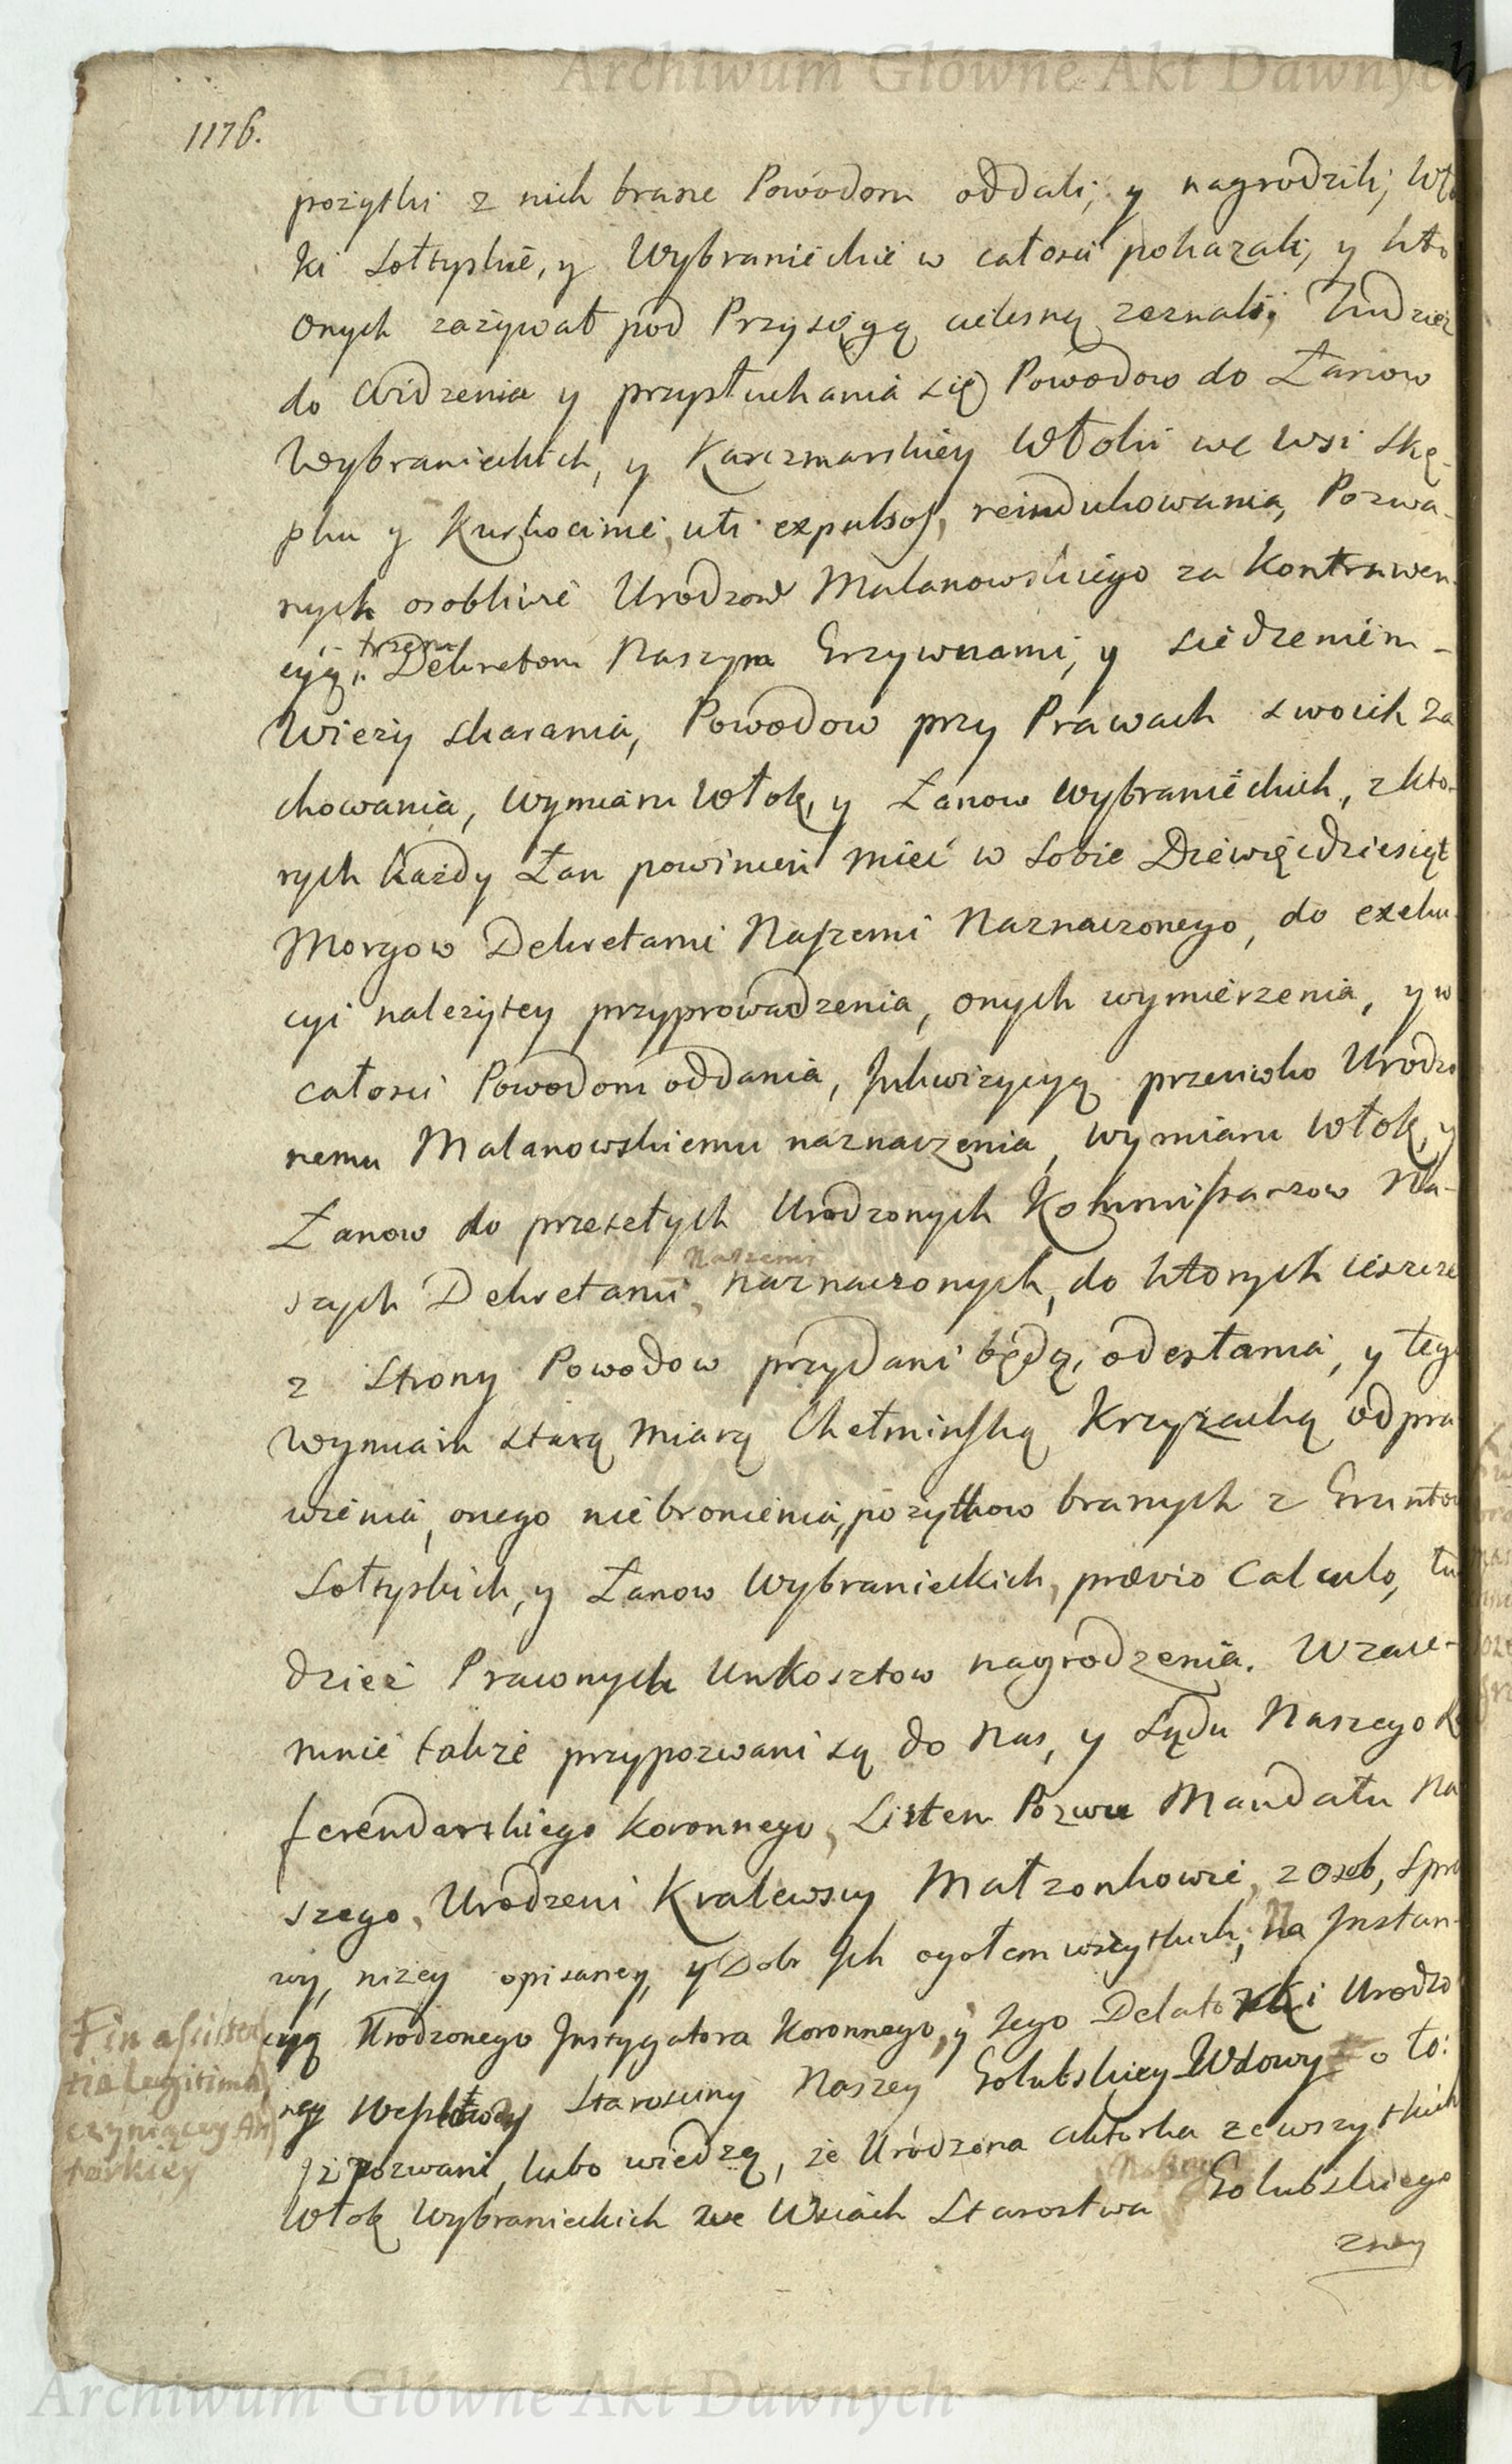 Archiwum Główne Akt Dawnych
1176.
pożytki z nich brane Powodom oddali, y nagrodzili, Wło
ki Sołtyskie, y Wybranieckie w całosci pokazali, y kto
onych zażywał pod Przysięgą cielesną zeznali, Tudzież
do widzenia y przysłuchania się Powodow do Łanow
Wybranieckich, y Karczmarskiey Włoki we Wsi Skę-
psku y Kuzkocinie, uti expulsos, reindukowania, Pozwa-
nych osobliwie Urodzon Malanowskiego za kontrawen-
cyą trzem Dekretom Naszym Grzywnami, y siedzeniem -
Wieży skarania, Powodow przy Prawach swoich za
chowania, Wymiaru Włok, y Łanow Wybranieckich, z kto-
rych każdy Łan powinien mieć w sobie Dziewięćdziesiąt
Morgow Dekretami Naszemi Naznaczonego, do exeku-
cyi należytey przyprowadzenia, onych wymierzenia, y w
całosci Powodom oddania, Inkwizycyą przeciwko Urodzo
nemu Malanowskiemu naznaczenia, Wymiaru Włok, y
Łanow do przeszłych Urodzonych Kommissarzow Na-
szych Dekretami Naszemi naznaczonych, do ktorych ieszcze
z strony Powodow przydani będą, odesłania, y tego
Wymiaru starą miarą Chełminską Krzyżacką odpra
wienia, onego niebronienia, pożytkow branych z Grunto
Sołtyskich, y Łanow Wybranieckich, prævio Calculo, tu
dzież Prawnych Unkosztow nagrodzenia. Wzaie-
mnie także przypozwani są do Nas, y Sądu Naszego Re
ferendarskiego Koronnego, Listem Pozwu Mandatu Na
szego, Urodzeni Kralewscy Małzonkowie, z Osob, spra
wy, niżey opisaney, y Dobr Ich ogołem wszytkich, Na Instan-
cyą Urodzonego Instygatora Koronnego, y Iego Delatorki Urodzo
ney Starosciny Naszey Golubskiey Wdowy o to:
Fin assisten
tia legitima
czyniącey Ak
torkiey
Iż pozwani, lubo wiedzą, że Urodzona Aktorka ze wszytkich
Włok Wybranieckich we Wsiach Starostwa Naszego Golubskiego
zney
Archiwum Główne Akt Dawnych